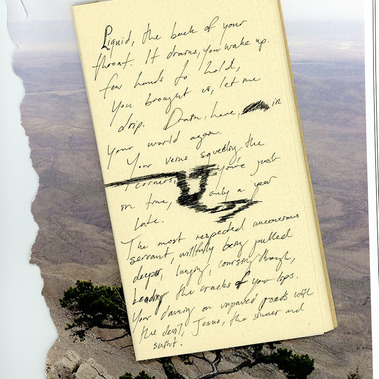 Liquid, the back of your
throat. It drains, you wake up.
few hands to hold,
You brought us, let me
drip. Down, here, in
your world again.
Your veins squeezing the
corners, you're just
on time, only a year
late.
The most respected
servant, willfully being pulled
deeper, laughing, coursing through,
the cracks of your lips.
Your dancing on unpaved roads with
the devil, Jesus, the sinner and